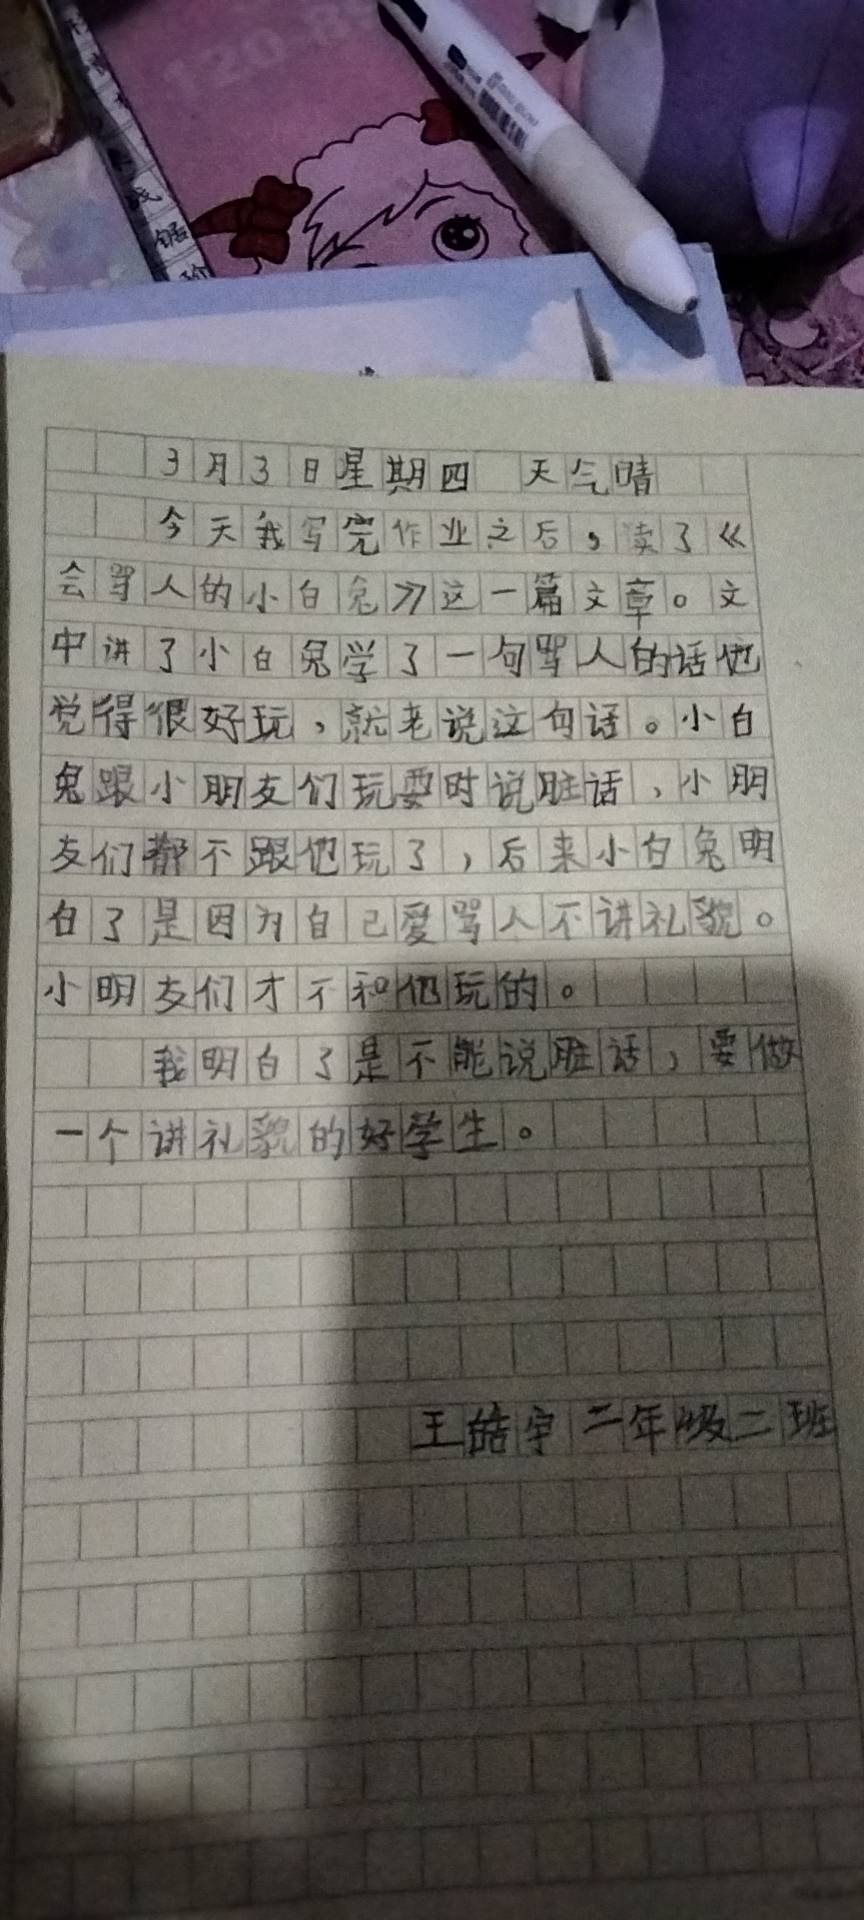 120-89
锯
3月3日星期四 天气晴
今天我写完作业之后，读了《
会骂人的小白兔》这一篇文章。文
中讲了小白兔学了一句骂人的话他
觉得很好玩，就老说这句话。小白
兔跟小朋友们玩耍时说脏话，小朋
友们都不跟他玩了，后来小白兔明
白了是因为自己爱骂人不讲礼貌。
小明友们才不和他玩的。
我明白了是不能说脏话，要做
一个讲礼貌的好学生。
王皓宇二年级二班